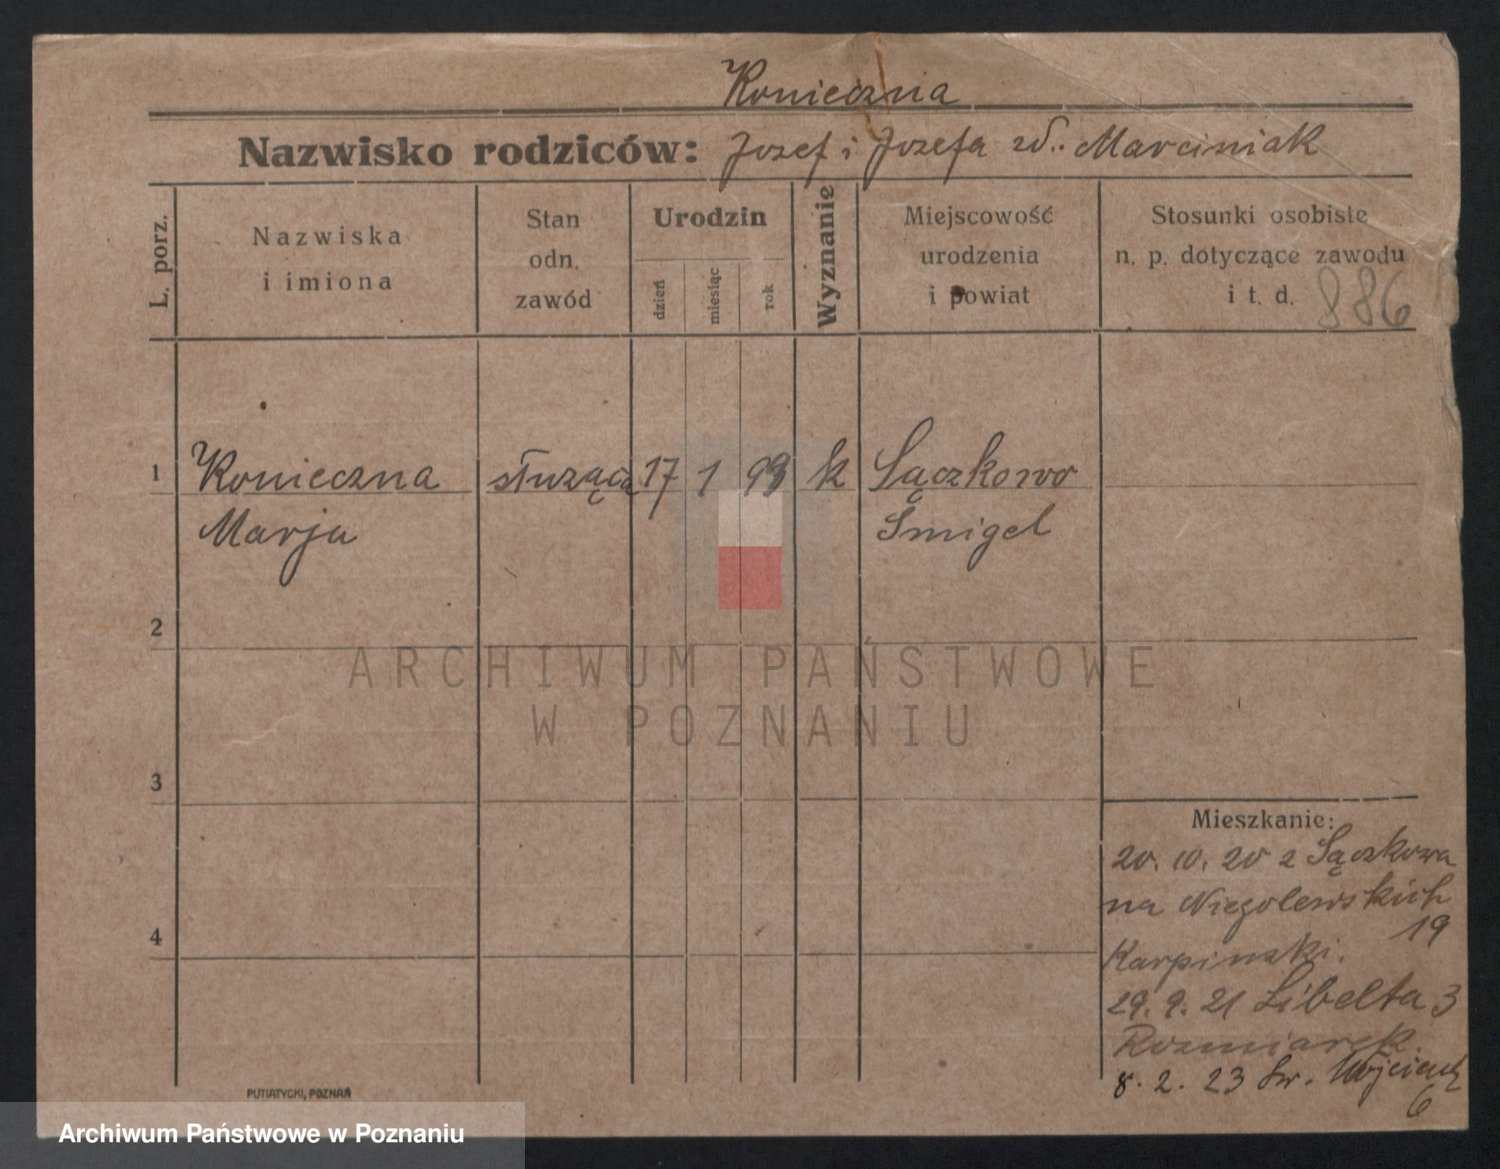 Konieczna
Nazwisko rodziców: Jozef i Jozefa zd. Marciniak
L. porz.
Nazwiska
i imiona
Stan
odn.
zawód
Urodzin
dzień
miesiąc
rok
Wyznanie
Miejscowość
urodzenia
i powiat
Stosunki osobiste
n. p. dotyczące zawodu
i t. d.
886
1 Konieczna służąca 17 1 99 k Sączkowo
Marja Śmigel
2
ARCHIWUM PAŃSTWOWE
W POZNANIU
3
Mieszkanie:
20. 10. 20 z Sączkowa
na Niegolewskich
19
4
Karpinski.
29. 9. 21 Libelta 3
Rozmiarek.
8. 2. 23 Św. Wojciech
6
PUTIATYCKI, POZNAŃ
Archiwum Państwowe w Poznaniu